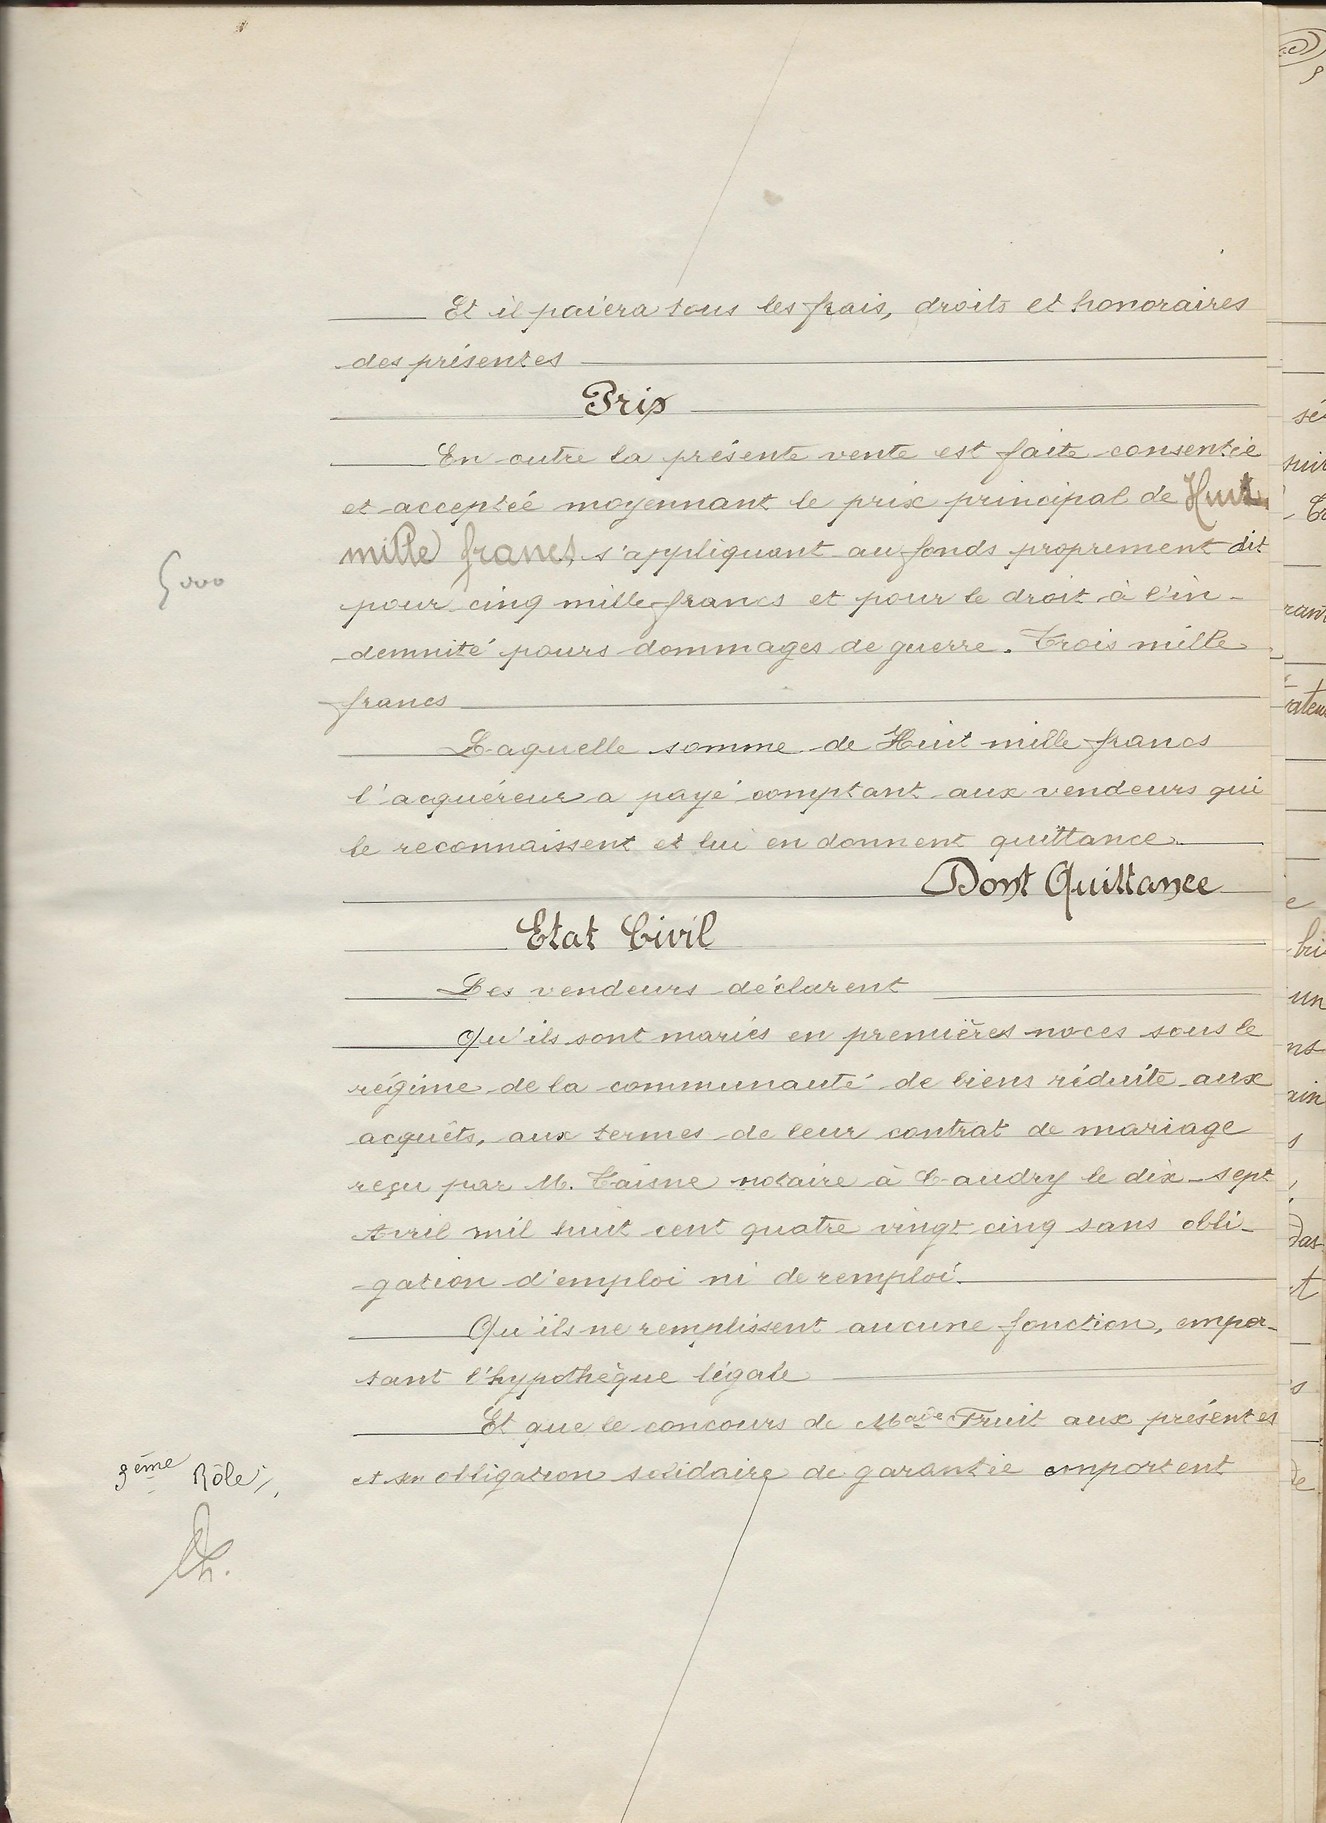 Et il paiera tous les frais, droits et honoraires
des présentes
Prix
En outre la présente vente est faite consentie
et acceptée moyennant le prix principal de Huit
mille francs, s'appliquant au fonds proprement dit
5000
pour cinq mille francs et pour le droit à l'in-
demnité pours dommages de guerre. Trois mille
francs
Laquelle somme de Huit mille francs
l'acquéreur a payé comptant aux vendeurs qui
le reconnaissent et lui en donnent quittance.
Dont Quittance
Etat Civil
Les vendeurs déclarent
Qu'ils sont mariés en premières noces sous le
régime de la communauté de biens réduite aux
acquêts, aux termes de leur contrat de mariage
reçu par M. Taisne notaire à Caudry le dix-sept
Avril mil huit cent quatre vingt cinq sans obli-
gation d'emploi ni de remploi.
Qu'ils ne remplissent aucune fonction, empor-
tant l'hypothèque légale
Et que le concours de Made Fruit aux présentes
et son obligation solidaire de garantie emportent
3ème Rôle